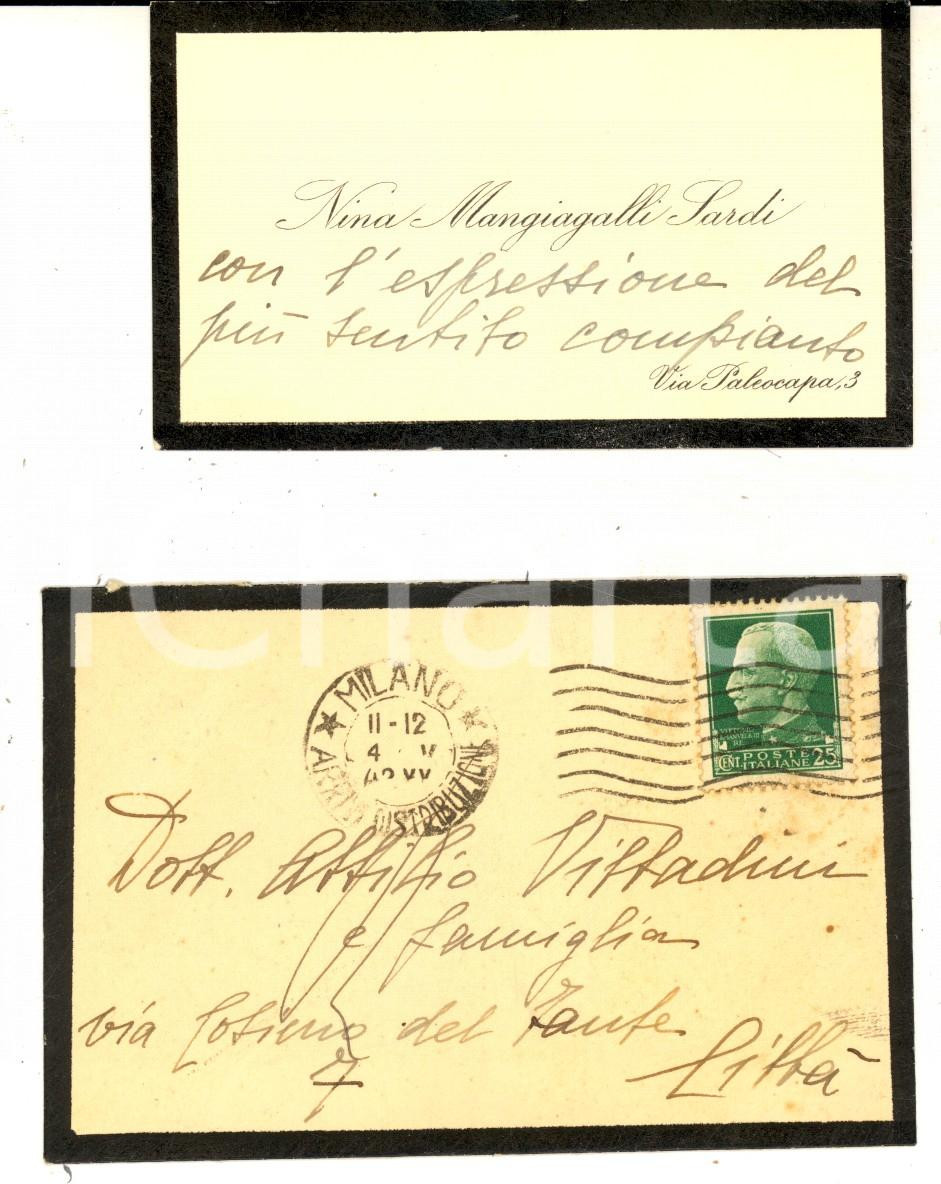 Nina Mangiagalli Sardi
con l'espressione del
più sentito compianto
Via Paleocapa, 3
MILANO
11-12
4 V
42 XX
ARRIVI DISTRIBUZIONE
VITTORIO
EMANVELE III
RE
CENT. POSTE 25
ITALIANE
Dott. Attilio Vittadini
e famiglia
via Cosimo del Fante
7
Città
iCharta